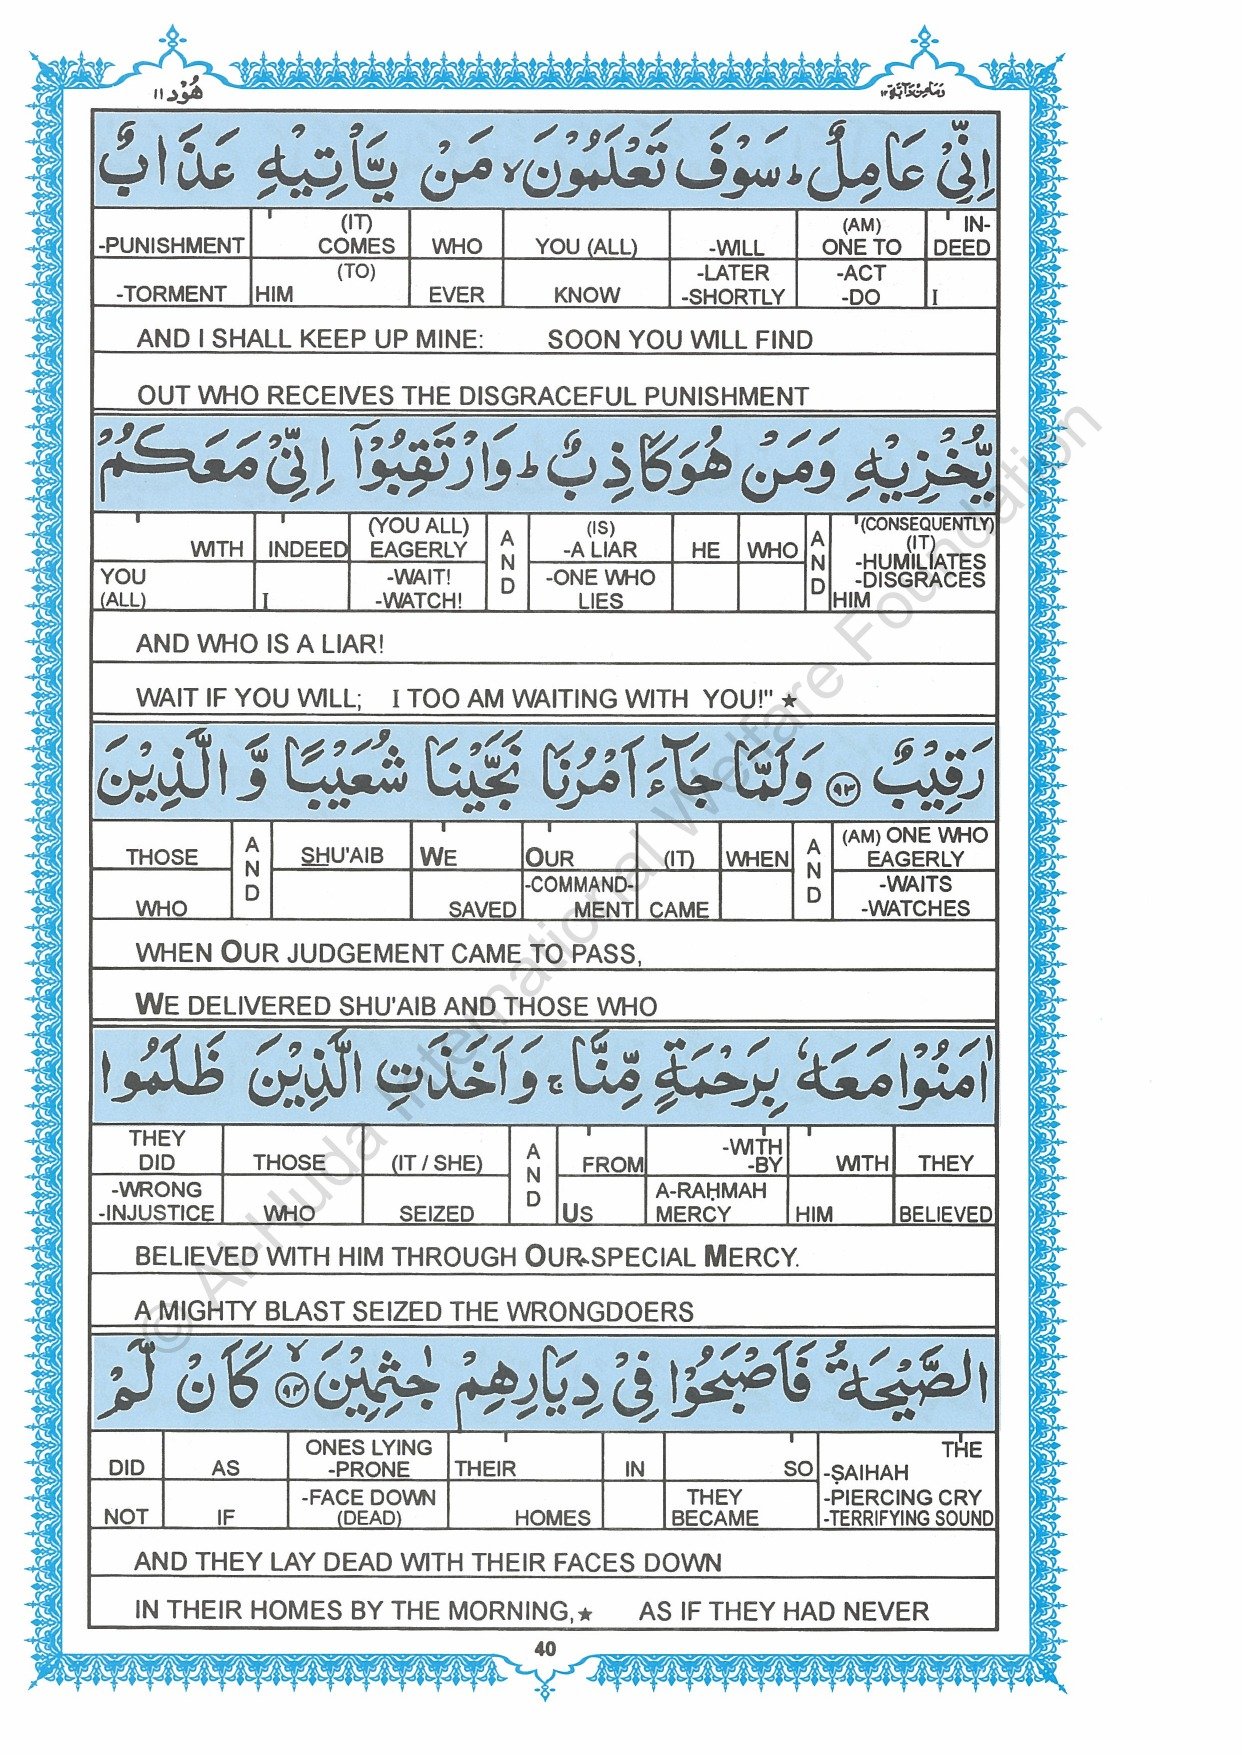 هُوْد ١١
وَمَا مِنْ دَآبَّة ١٢
اِنِّیْ عَامِلٌ ؕ سَوْفَ تَعْلَمُوْنَ ۙ مَنْ یَّاْتِیْهِ عَذَابٌ
-PUNISHMENT (IT) COMES WHO YOU (ALL) -WILL (AM) ONE TO IN-DEED
-TORMENT (TO) HIM EVER KNOW -LATER -SHORTLY -ACT -DO I
AND I SHALL KEEP UP MINE: SOON YOU WILL FIND
OUT WHO RECEIVES THE DISGRACEFUL PUNISHMENT
یُّخْزِیْهِ وَمَنْ هُوَ كَاذِبٌ ؕ وَارْتَقِبُوْۤا اِنِّیْ مَعَكُمْ
WITH INDEED (YOU ALL) EAGERLY AND (IS) -A LIAR HE WHO AND (CONSEQUENTLY) (IT) -HUMILIATES -DISGRACES
YOU (ALL) I -WAIT! -WATCH! -ONE WHO LIES HIM
AND WHO IS A LIAR!
WAIT IF YOU WILL; I TOO AM WAITING WITH YOU!" ★
رَقِیْبٌ ﴿٩٣﴾ وَلَمَّا جَآءَ اَمْرُنَا نَجَّیْنَا شُعَیْبًا وَّ الَّذِیْنَ
THOSE AND SHU'AIB WE OUR (IT) WHEN AND (AM) ONE WHO EAGERLY
WHO SAVED -COMMAND-MENT CAME -WAITS -WATCHES
WHEN OUR JUDGEMENT CAME TO PASS,
WE DELIVERED SHU'AIB AND THOSE WHO
اٰمَنُوْا مَعَهٗ بِرَحْمَةٍ مِّنَّا ۚ وَاَخَذَتِ الَّذِیْنَ ظَلَمُوا
THEY DID THOSE (IT / SHE) AND FROM -WITH -BY WITH THEY
-WRONG -INJUSTICE WHO SEIZED US A-RAḤMAH MERCY HIM BELIEVED
BELIEVED WITH HIM THROUGH OUR SPECIAL MERCY.
A MIGHTY BLAST SEIZED THE WRONGDOERS
الصَّیْحَةُ فَاَصْبَحُوْا فِیْ دِیَارِهِمْ جٰثِمِیْنَ ۙ ﴿٩٤﴾ كَاَنْ لَّمْ
DID AS ONES LYING -PRONE THEIR IN SO THE -ṢAIHAH
NOT IF -FACE DOWN (DEAD) HOMES THEY BECAME -PIERCING CRY -TERRIFYING SOUND
AND THEY LAY DEAD WITH THEIR FACES DOWN
IN THEIR HOMES BY THE MORNING,★ AS IF THEY HAD NEVER
40
© Al-Huda International Welfare Foundation